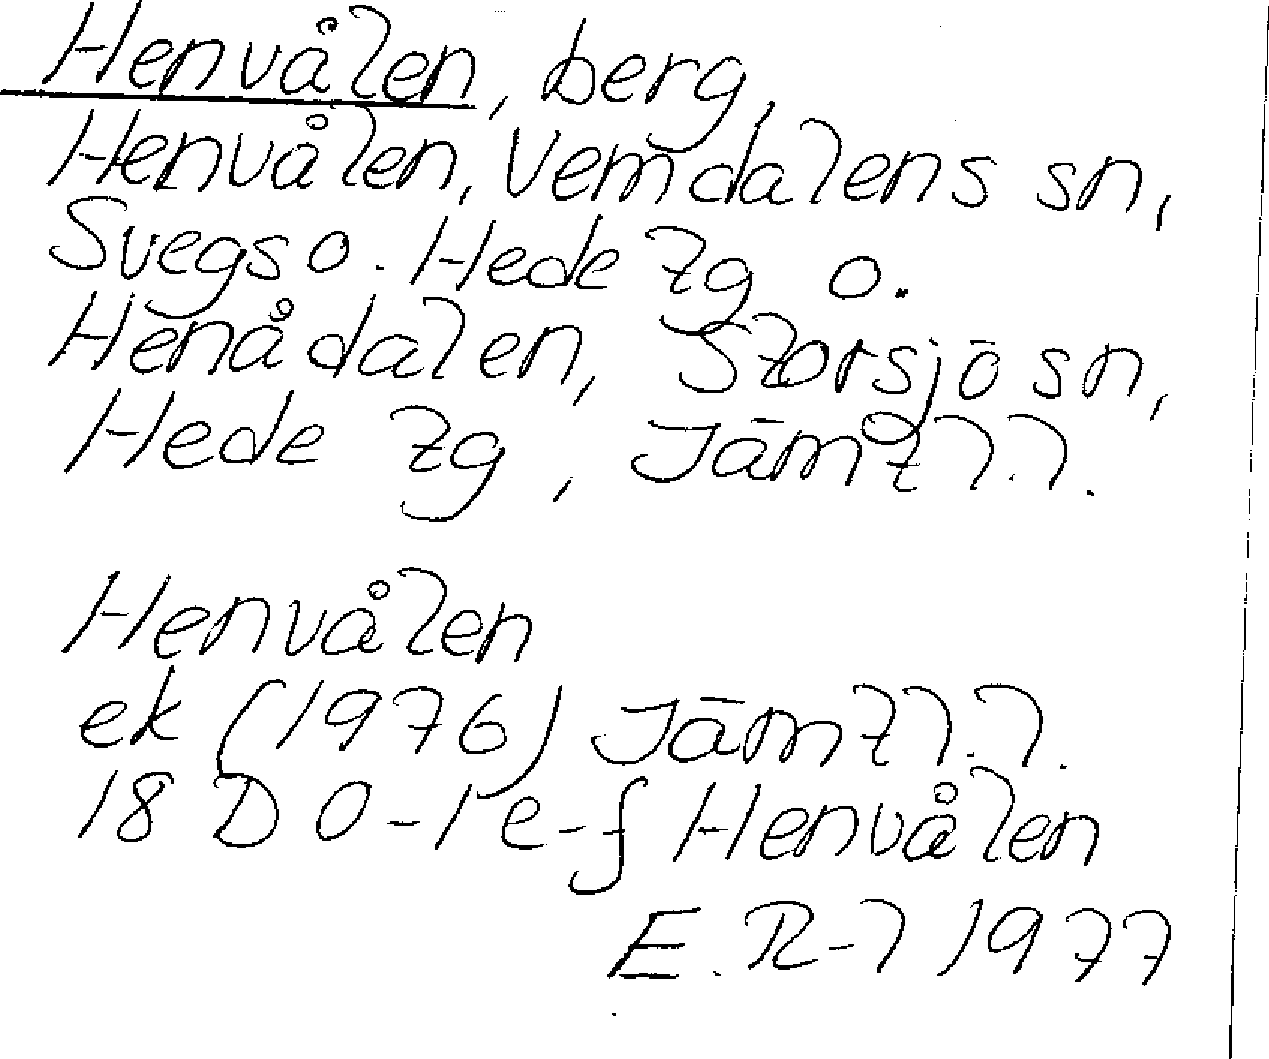 Henvålen, berg,
Henvålen, Vemdalens sn,
Svegs o. Hede tg o.
Henådalen, Storsjö sn,
Hede tg, Jämtl.l.
Henvålen
ek (1976) Jämtl.l.
18 D 0-1 e-f Henvålen
E. R-l 1977